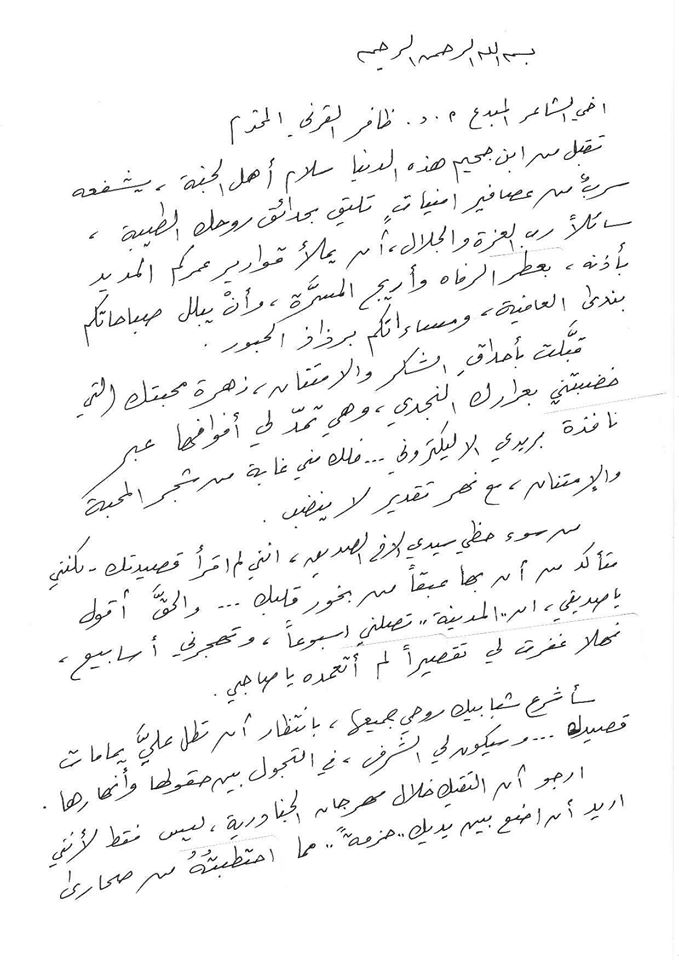 بسم الله الرحمن الرحيم
اخي الشاعر المبدع م. د. ظافر القرني المحترم
تقبل من ابن جحيم هذه الدنيا سلام أهل الجنة ، يشفعه
سربٌ من عصافير امنيات تليق بحدائق روحك الطيبة ،
سائلاً رب العزة والجلال، أن يملأ قوارير عمركم المديد
بأذنه ، بعطر الرفاه وأريج المسرَّة ، وأنْ يبلل صباحاتكم
بندى العافية ، ومساءاتكم برذاذ الحبور .
قبَّلت بأحداق الشكر والامتنان ، زهرة محبتك التي
خضبتني بعرارك النجدي ، وهي تمدّ لي أفوافها عبر
نافذة بريدي الاليكتروني ... فلك مني غابة من شجر المحبة
والإمتنان ، مع نهر تقدير لا ينضب .
من سوء حظي سيدي الاخ الصديق ، انني لم اقرأ قصيدتك - لكنني
متأكد من أن بها عبقاً من بخور قلبك ... والحقَّ أقول
يا صديقي ، ان ,, المدينة ,, تصلني اسبوعاً ، وتهجرني أسابيع ،
فهلا غفرت لي تقصيراً لم أتعمده يا صاحبي .
سأشرع شبابيك روحي جميعها ، بانتظار أن تطل عليَّ يمامات
قصيدك ... وسيكون لي الشرف ، في التجول بين حقولها وأنهارها .
ارجو أن التقيك خلال مهرجان الجنادرية ، ليس فقط لأنني
اريد أن اضع بين يديك ,, حزمة ,, مما احتطبتُهُ من صحارى